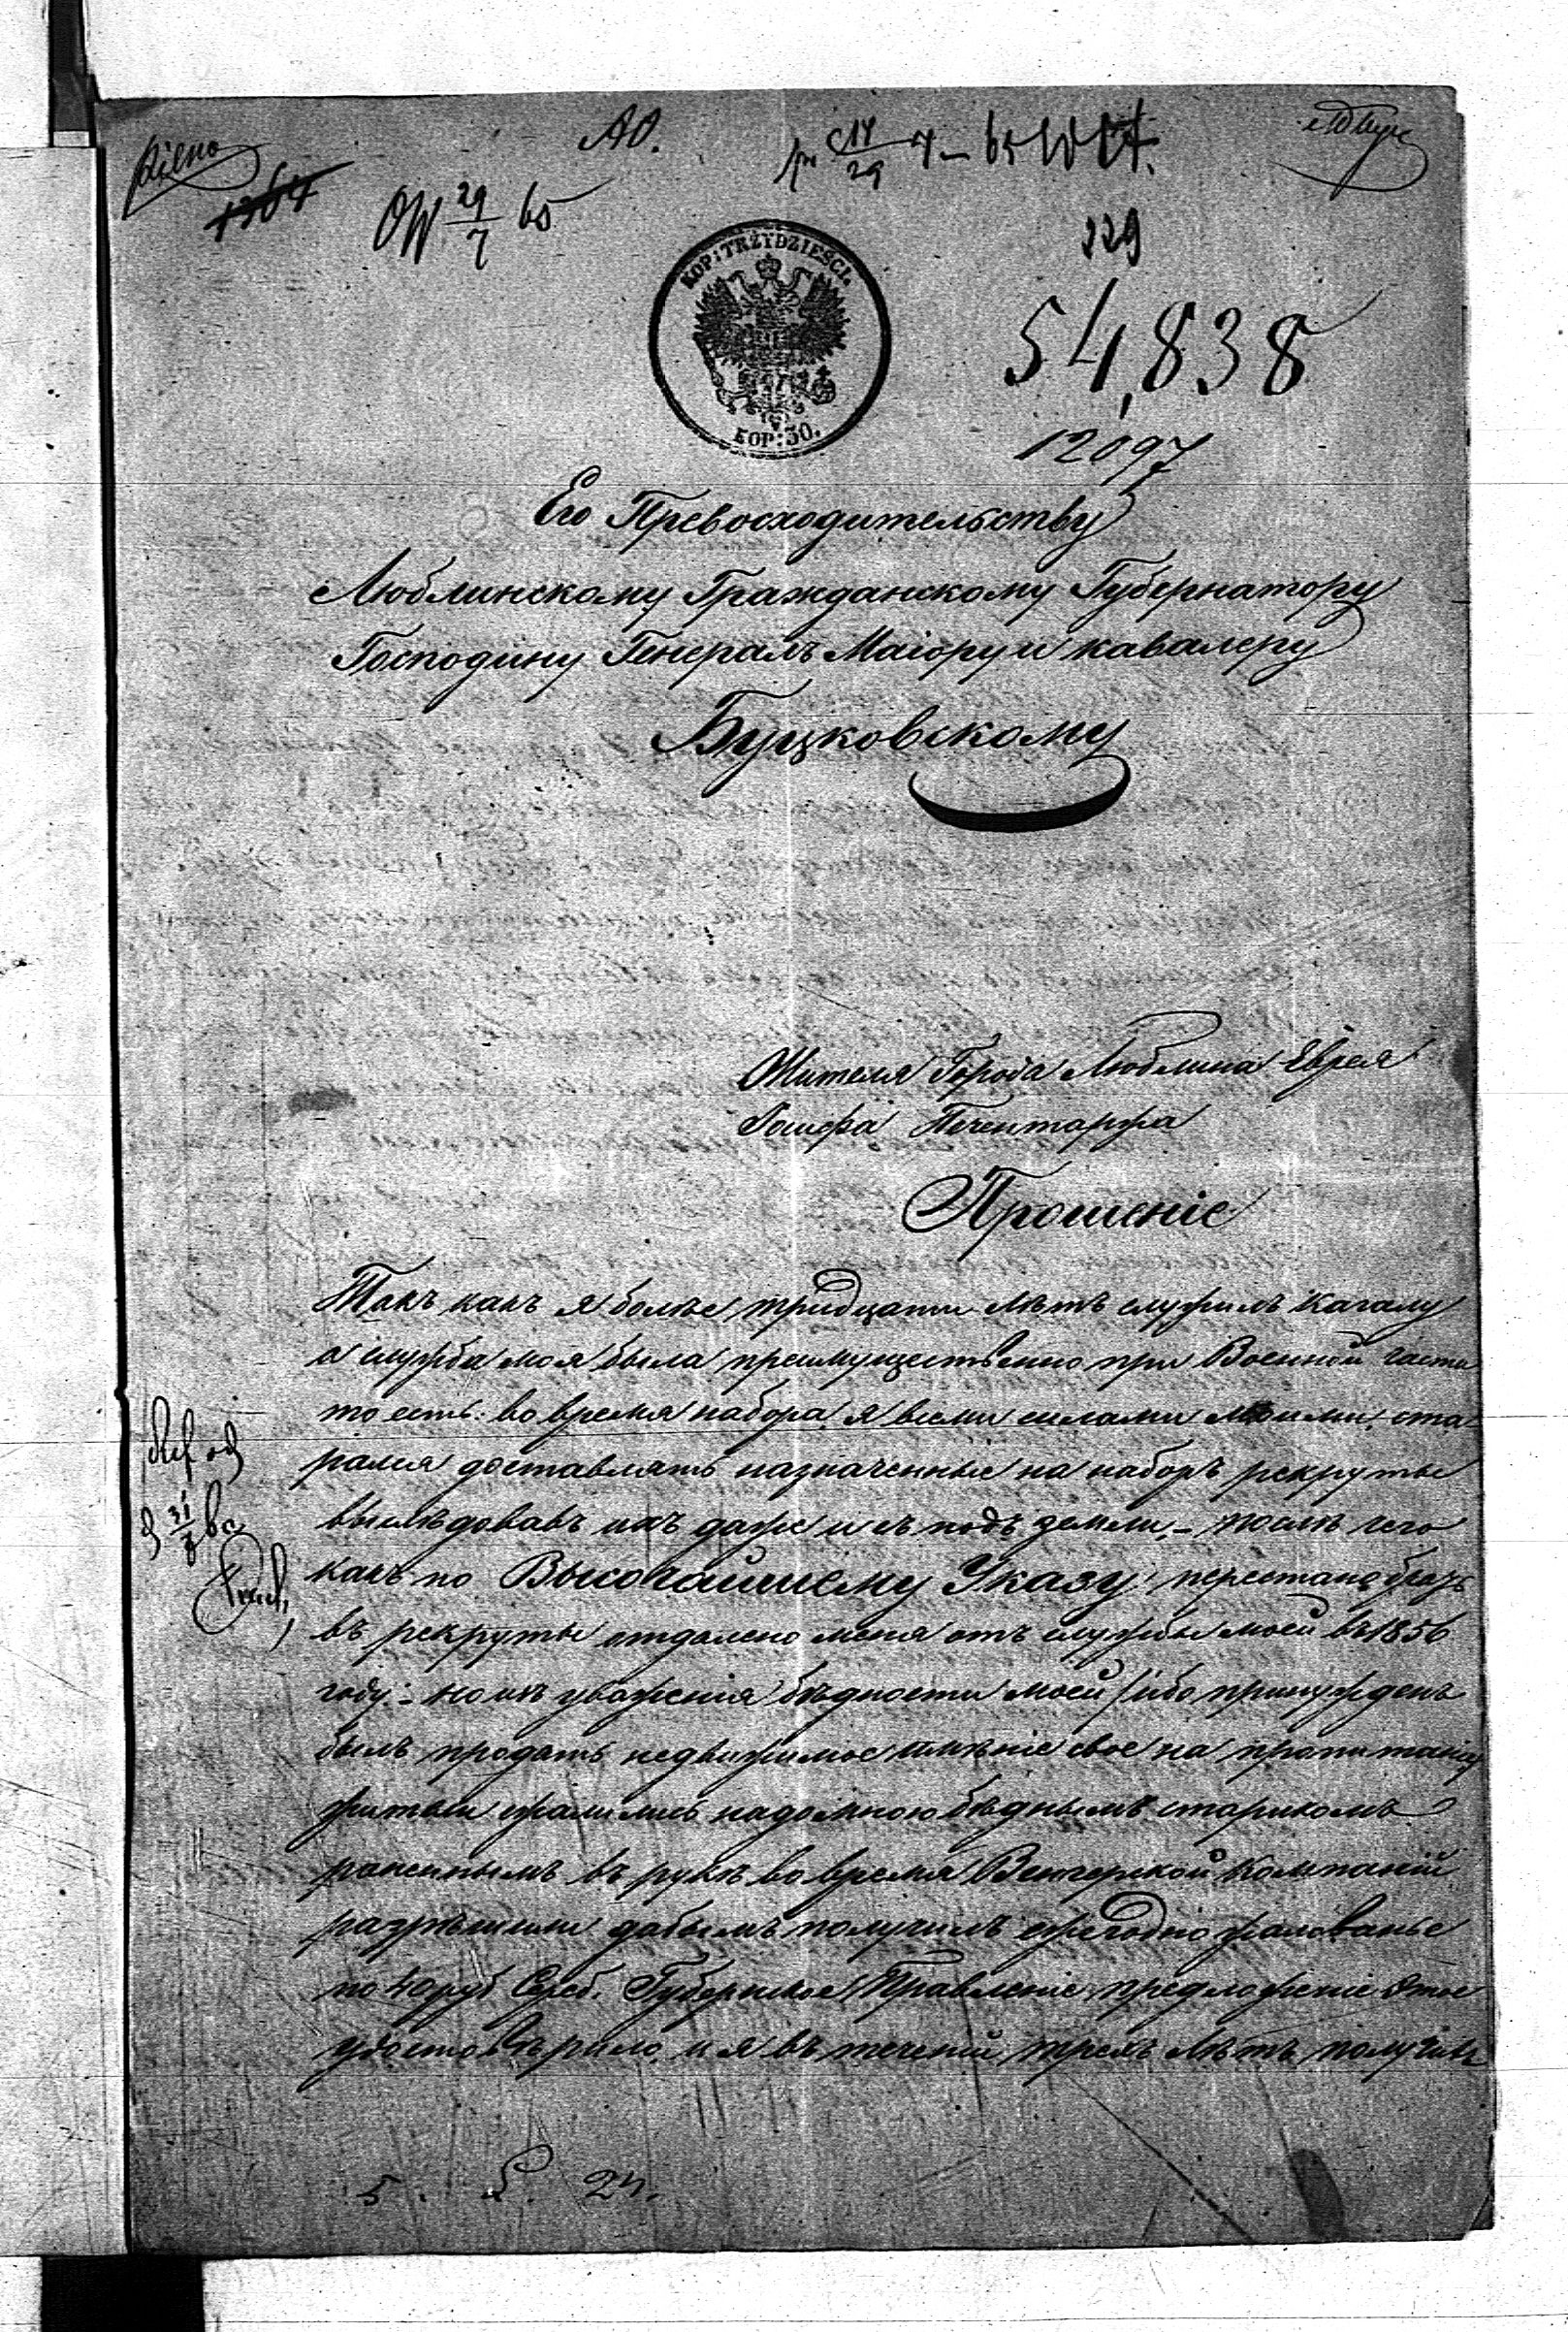 Pilno
1364
AO.
OW 29/7 65
229
KOP: TRZYDZIEŚCI.
KOP: 30.
54,838
12097
Его Превосходительству
Люблинскому Гражданскому Губернатору
Господину Генералъ Маіору и кавалеру
Буцковскому
Жителя Города Люблина Еврея
Іосифа
Прошеніе
Такъ какъ я болѣе тридцати лѣтъ служилъ Кагалу
а служба моя была преимущественно при Военной части
то есть: во время набора я всеми силами моими ста
рался доставлять назначенные на наборъ рекруты
выслѣдовавъ ихъ даже и съ подъ земли, – послѣ чего
какъ по Высочайшему Указу перестано брать
въ рекруты отдалено меня отъ службы моей въ 1856
году: – но изъ уваженія бѣдности моей /ибо принужденъ
былъ продать недвижимое имѣніе свое на пропитаніе/
сжалились надомною бѣднымъ старикомъ
раненнымъ въ рукѣ во время Венгерской Компаніи
разрѣшили дабымъ получилъ ежегодно жалованье
по 40 руб Сереб. Губернское Правленіе предложеніе этое
удостовѣрило, и я въ теченіи трехъ лѣтъ получилъ
5. 24.